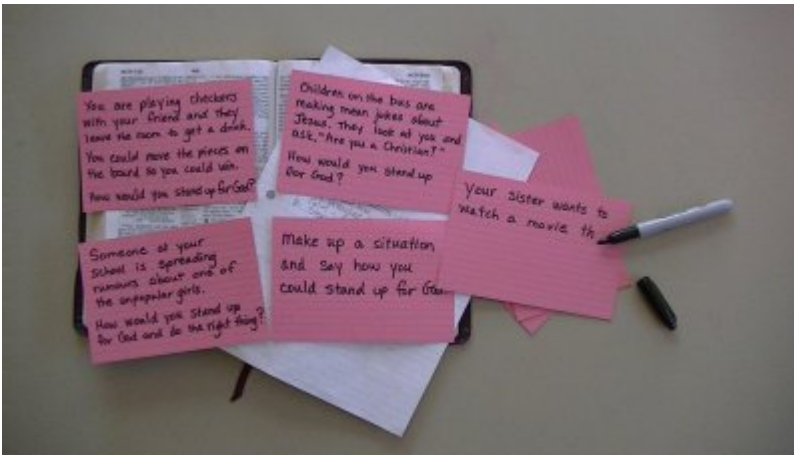 You are playing checkers
with your friend and they
leave the room to get a drink.
You could move the pieces on
the board so you could win.
How would you stand up for God?
Children on the bus are
making mean jokes about
Jesus. They look at you and
ask, "Are you a Christian?"
How would you stand up
for God?
Someone at your
school is spreading
rumours about one of
the unpopular girls.
How would you stand up
for God and do the right thing?
Make up a situation
and say how you
could stand up for God.
Your sister wants to
watch a movie th